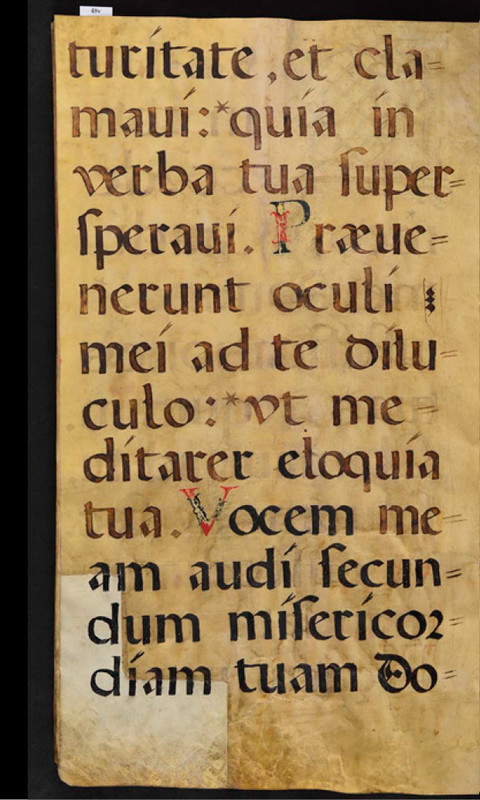 turitate, et cla=
maui:*quia in
verba tua ſuper=
ſperaui. Præue=
nerunt oculi
mei ad te dilu=
culo:*vt me=
ditarer eloquia
tua. Vocem me=
am audi ſecun=
dum miſericoꝛ=
diam tuam Do=